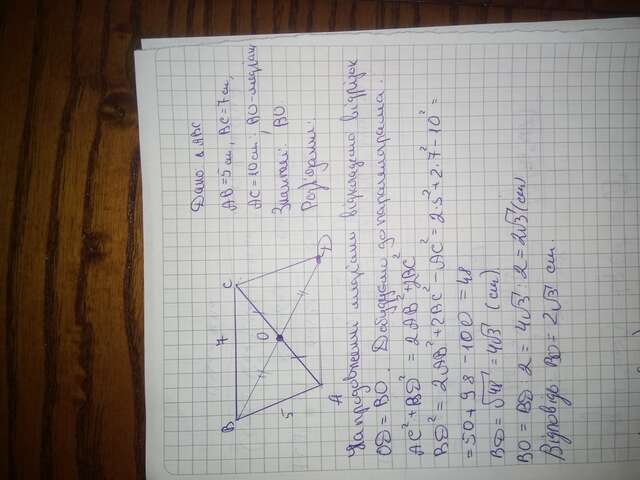 Дано: Δ ABC
AB=5 см, BC=7см,
AC=10см; BO-медіана
Знайти: BO
Розв'язання:
B 7 C
O
5
A D
На продовженні медіани відкладемо відрізок
OD=BO. Добудуємо до паралелограма.
AC²+BD²=2AB²+2BC²
BD²=2AB²+2BC²-AC²=2·5²+2·7²-10²=
=50+98-100=48
BD=√48=4√3 (см)
BO=BD:2=4√3:2=2√3(см)
Відповідь: BO=2√3 см